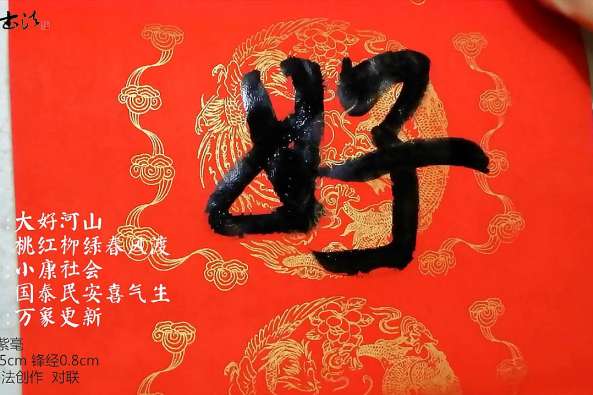 好
:大好河山
桃红柳绿春风渡
:小康社会
国泰民安喜气生
:万象更新
紫毫
5cm 锋经0.8cm
法创作 对联